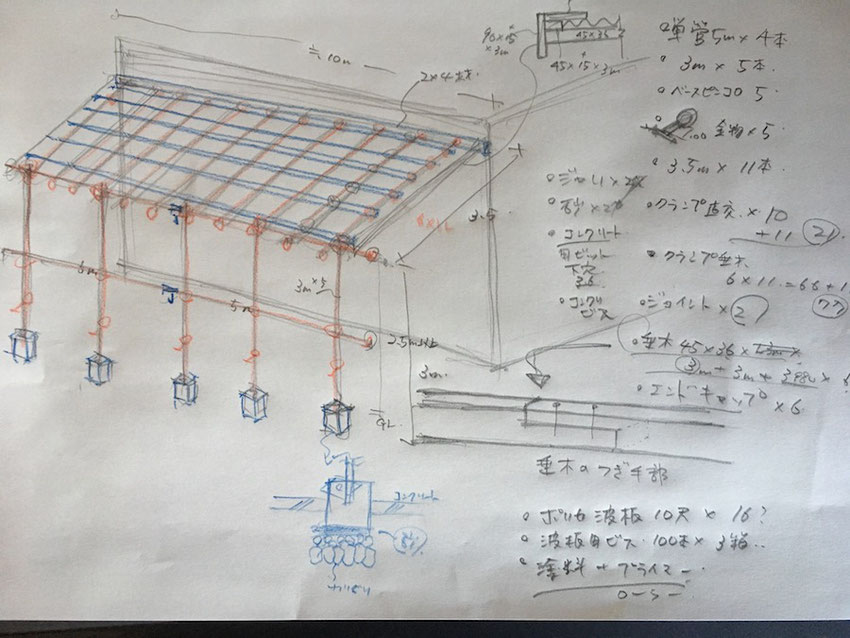 ≒10m
2×4材
90×15
×3m
45×36
45×15×3m
6m
5m
3m×5
3.5
2.5m以上
3m
GL
コンクリート
垂木のつぎ手部
単管5m×4本
3m×5本
ベースピンコロ 5
金物×5
3.5m×11本
ジャリ×2
砂×2
コンクリート
用ビット
下穴
コンクリ
ビス
クランプ直交×10
+11 21
クランプ垂木
6×11=66+1
77
ジョイント×2
垂木 45×36×
3m+3m+
エンドキャップ×6
ポリカ波板 10尺×16?
波板用ビス 100本×3箱
塗料+プライマー
ローラー